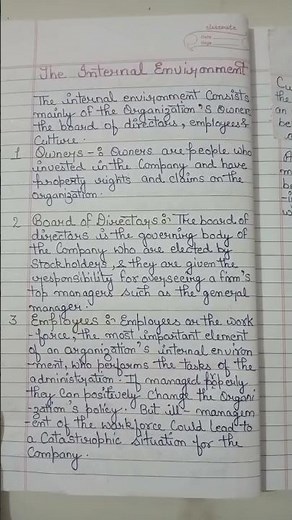 classmate
Date
Page
The Internal Environment
The internal environment Consists
mainly of the Organization's Owner
the board of directors, employees &
Culture.
1 Owners -: Owners are people who
invested in the Company and have
property rights and claims on the
organization.
2 Board of Directors :- The board of
directors is the governing body of
the Company who are elected by
Stockholders, & they are given the
responsibility for overseeing a firm's
top managers such as the general
manager.
3. Employees :- Employees or the work
-force, the most important element
of an organization's internal environ
-ment, who performs the tasks of the
administration. If managed properly
they can positively change the Organi
-zation's policy. But ill-managem
-ent of the workforce Could lead to
a Catastrophic Situation for the
Company.